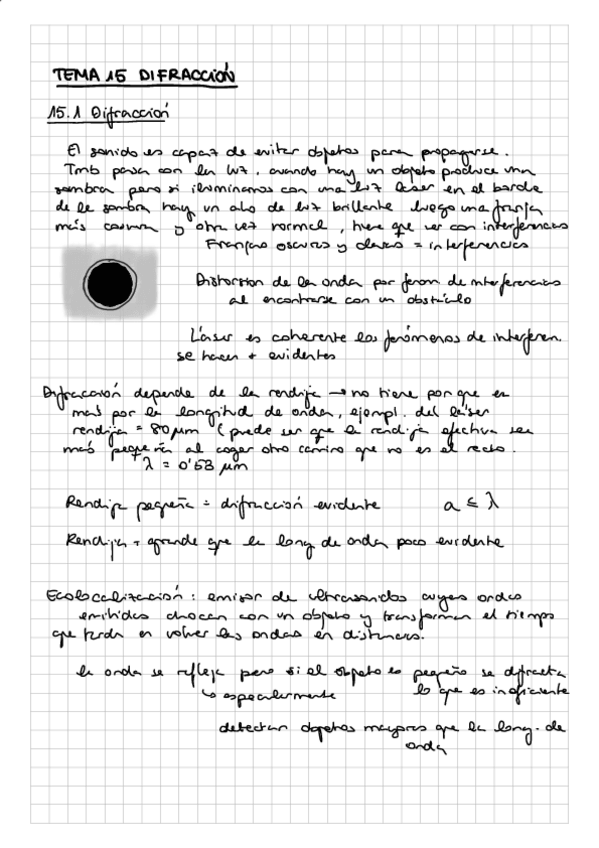 TEMA 15 DIFRACCIÓN
15.1 Difracción
El sonido es capaz de evitar objetos para propagarse.
Tmb pasa con la luz, cuando hay un objeto produce una
sombra pero si iluminamos con una luz láser en el borde
de la sombra hay un alo de luz brillante luego una franja
más oscura y otra vez normal, tiene que ver con interferencias
Franjas oscuras y claras = interferencias
Distorsion de la onda por fenom. de interferencias
al encontrarse con un obstáculo
Láser es coherente los fenómenos de interferen.
se hacen + evidentes
Difracción depende de la rendija → no tiene por que es
mas por la longitud de onda, ejempl. del láser
rendija = 80 μm (puede ser que la rendija efectiva sea
más pequeña al coger otro camino que no es el recto.
λ = 0'63 μm
Rendija pequeña = difracción evidente a ≤ λ
Rendija + grande que la long de onda poco evidente
Ecolocalización: emisor de ultrasonidos cuyas ondas
emitidas chocan con un objeto y transforman el tiempo
que tarda en volver las ondas en distancias.
la onda se refleja pero si el objeto es pequeño se difracta
↳ especularmente lo que es ineficiente
detectar objetos mayores que la long. de
onda